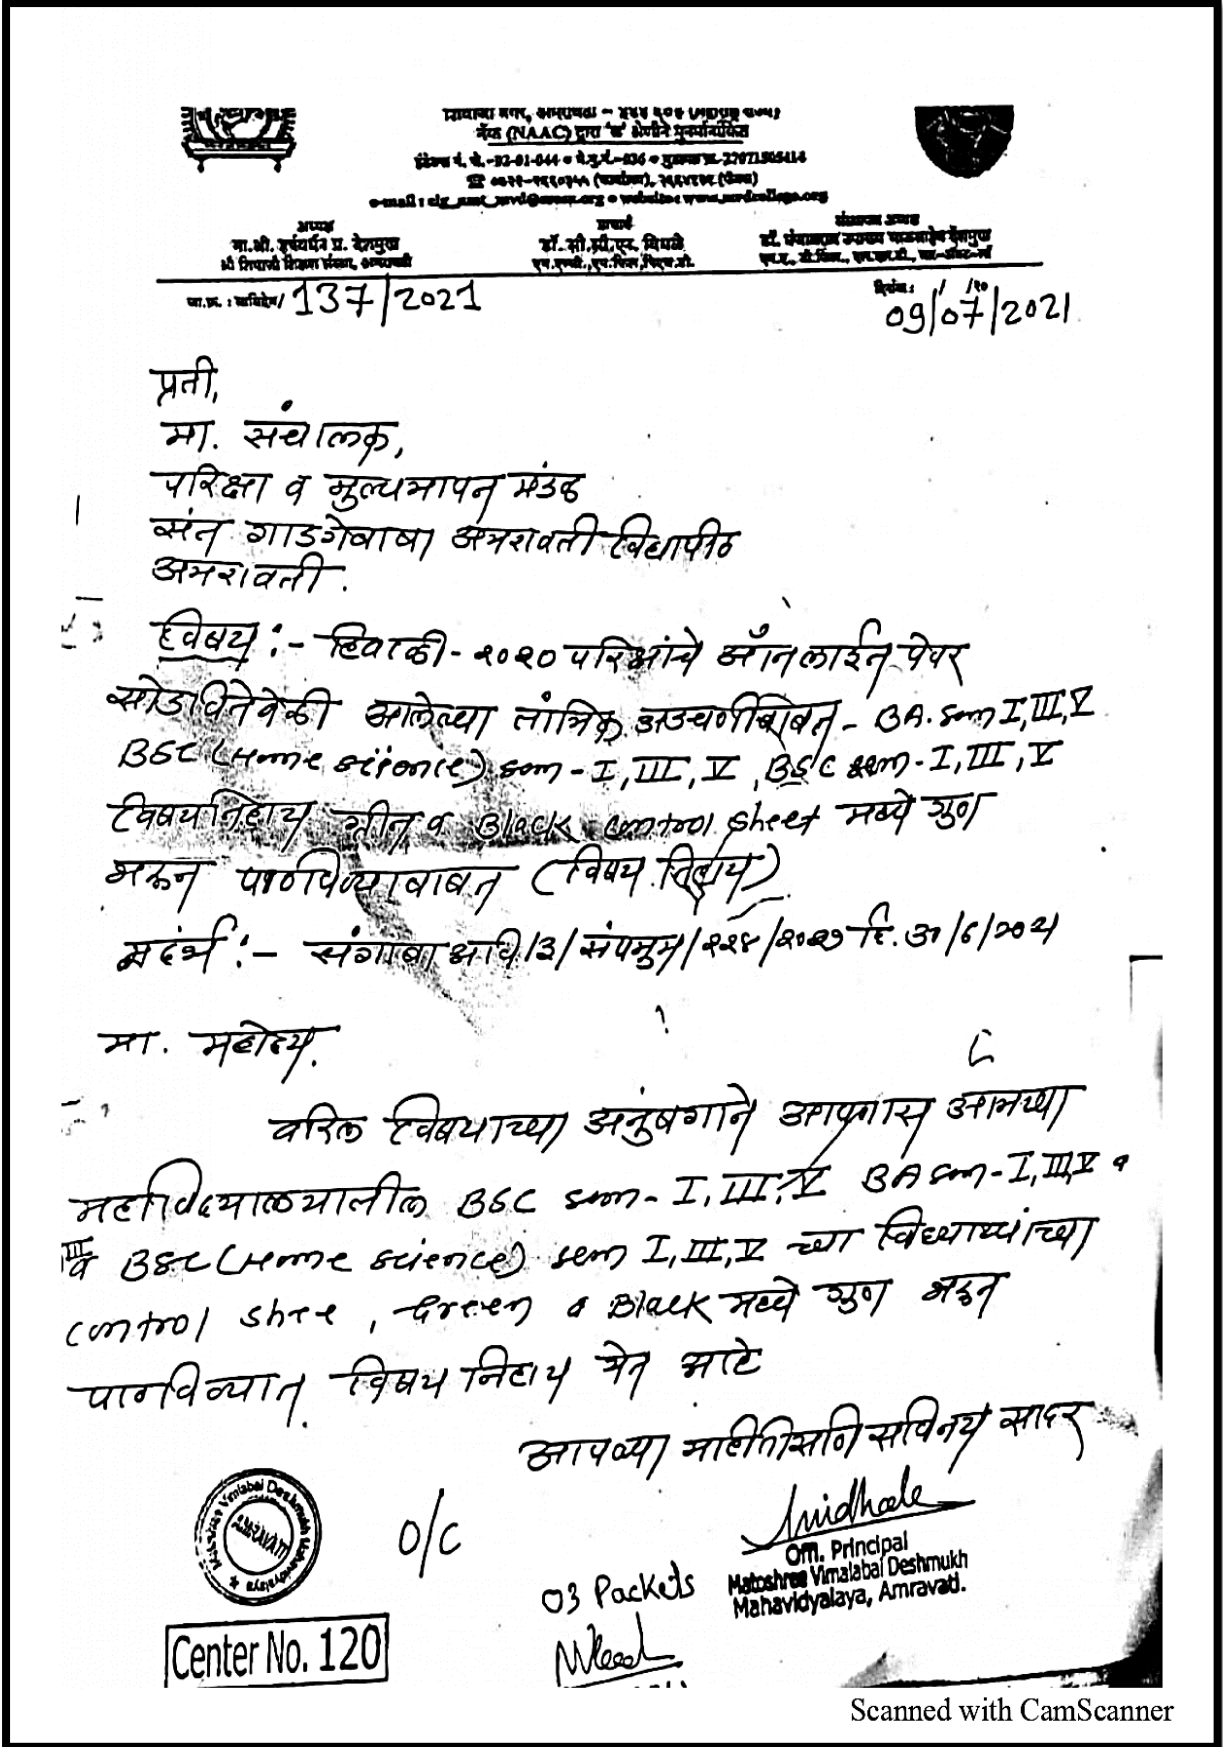 शिवाजी नगर, अमरावती - ४४४ ६०३ (महाराष्ट्र राज्य)
नॅक (NAAC) द्वारा 'ब' श्रेणीने पुनर्मानांकित
e-mail : website: www.mvdcollege.org
अध्यक्ष
मा.श्री. हर्षवर्धन प्र. देशमुख
श्री शिवाजी शिक्षण संस्था, अमरावती
प्राचार्य
डॉ. सी.
एम.एस्सी., एम.फिल, पिएच.डी.
संस्थापक अध्यक्ष
डॉ. पंजाबराव उपाख्य भाऊसाहेब देशमुख
जा.क्र. : मविदेम/ 137/2021
दिनांक : / /२०
09/07/2021
प्रती,
मा. संचालक,
परिक्षा व मुल्यमापन मंडळ
संत गाडगेबाबा अमरावती विद्यापीठ
अमरावती.
विषय :- हिवाळी - २०२० परिक्षांचे ऑनलाईन पेपर
सोडवितेवेळी आलेल्या तांत्रिक अडचणींबाबत - BA. sem I, III, V
BSC (Home science) sem - I, III, V, BSC sem - I, III, V
विषयनिहाय ग्रीन व Black control sheet मध्ये गुण
भरून पाठविण्याबाबत (विषय निहाय)
संदर्भ :- संगाबाअवि/3/संपमुम/२२४/२०२१ दि. ३०/६/२०२१
मा. महोदय.
वरिल विषयाच्या अनुषगाने आपणास आमच्या
महाविद्यालयातील BSC sem - I, III, V BA sem - I, III, V व
व BSC (Home science) sem I, III, V च्या विद्यार्थ्यांच्या
control shee, Green व Black मध्ये गुण भरून
पाठविण्यात विषय निहाय येत आहे
आपल्या माहितीसाठी सविनय सादर
Matoshree Vimalabai Deshmukh Mahavidyalaya
AMRAVATI
O/C
03 Packets
Offi. Principal
Matoshree Vimalabai Deshmukh
Mahavidyalaya, Amravati.
Center No. 120
Scanned with CamScanner